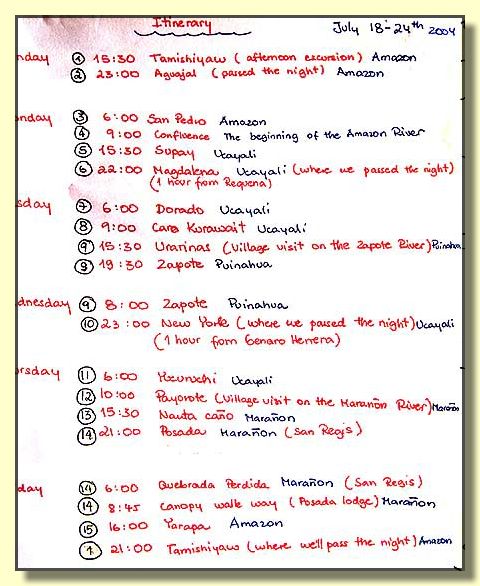 Itinerary
July 18-24th 2004
nday ① 15:30 Tamishiyaw (afternoon excursion) Amazon
② 23:00 Aguajal (passed the night) Amazon
nday ③ 6:00 San Pedro Amazon
④ 9:00 Confluence The beginning of the Amazon River
⑤ 15:30 Supay Ucayali
⑥ 22:00 Magdalena Ucayali (where we passed the night)
(1 hour from Requena)
sday ⑦ 6:00 Dorado Ucayali
⑧ 9:00 Caro Kurawait Ucayali
⑨ 15:30 Urarinas (Village visit on the Zapote River) Puinahua
⑨ 19:30 Zapote Puinahua
dnesday ⑨ 8:00 Zapote Puinahua
⑩ 23:00 New York (where we passed the night) Ucayali
(1 hour from Genaro Herrera)
rsday ⑪ 6:00 Ucayali
⑫ 10:00 Payorote (Village visit on the Marañon River) Marañon
⑬ 15:30 Nauta caño Marañon
⑭ 21:00 Posada Marañon (San Regis)
day ⑭ 6:00 Quebrada Perdida Marañon (San Regis)
⑭ 8:45 Canopy walk way (Posada lodge) Marañon
⑮ 16:00 Yarapa Amazon
① 21:00 Tamishiyaw (where we'll pass the night) Amazon